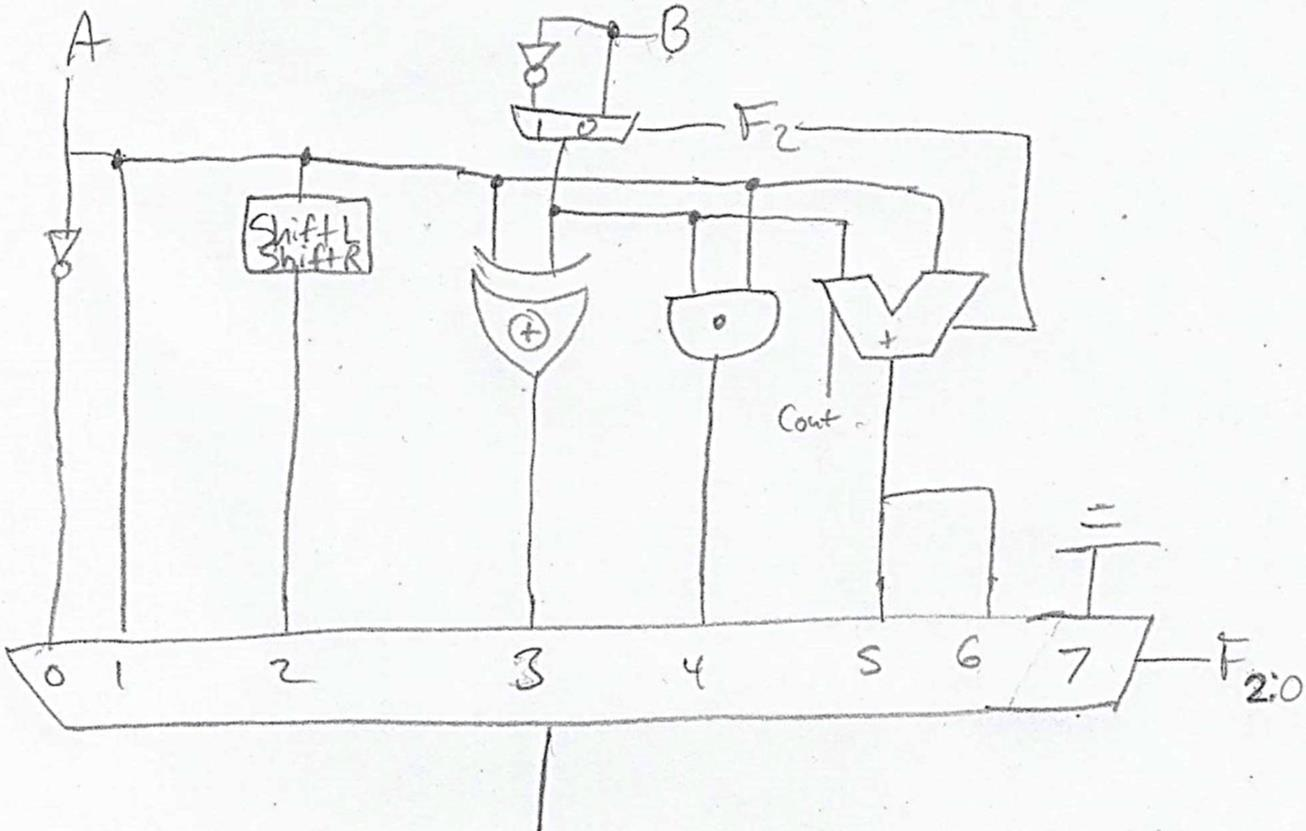 A
B
1 0
F2
Shift L
Shift R
+
+
Cout
0 1 2 3 4 5 6 7
F2:0